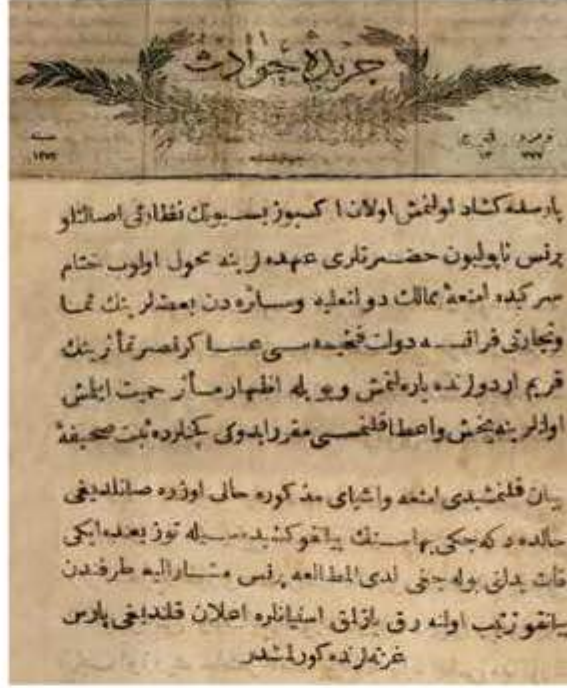 جريدهٔ حوادث
نومرو
سنه
پارسده كشاد اولنمش اولان اكسپوزيسيونك نظارتی اصالتلو
پرنس ناپوليون حضرتلری عهده لرينه محول اولوب ختام
امتعهٔ ممالك دولتعليه وسائره دن بعضلرينك
وتجارتی فرانسه دولت فخيمه سی عساكر نصرتمآثرينك
قريم اردولرنده ياره لنمش وبويله اظهار مآثر حميت ايلمش
اولانلرينه بخش واعطا قلنمسی مقرر ايدوكی ثبت صحيفهٔ
بيان قلنمشيدی امتعه واشيای مذكوره حالی اوزره صاتلديغی
حالده بهاسنك پيانقو كشيده سيله توزيعنده ايكی
قات بدلی بوله جغی لدی المطالعه پرنس مشاراليه طرفندن
پيانقو ترتيب اولنه رق يازلمق استيانلره اعلان قلنديغی پارس
غزته لرنده كورلمشدر